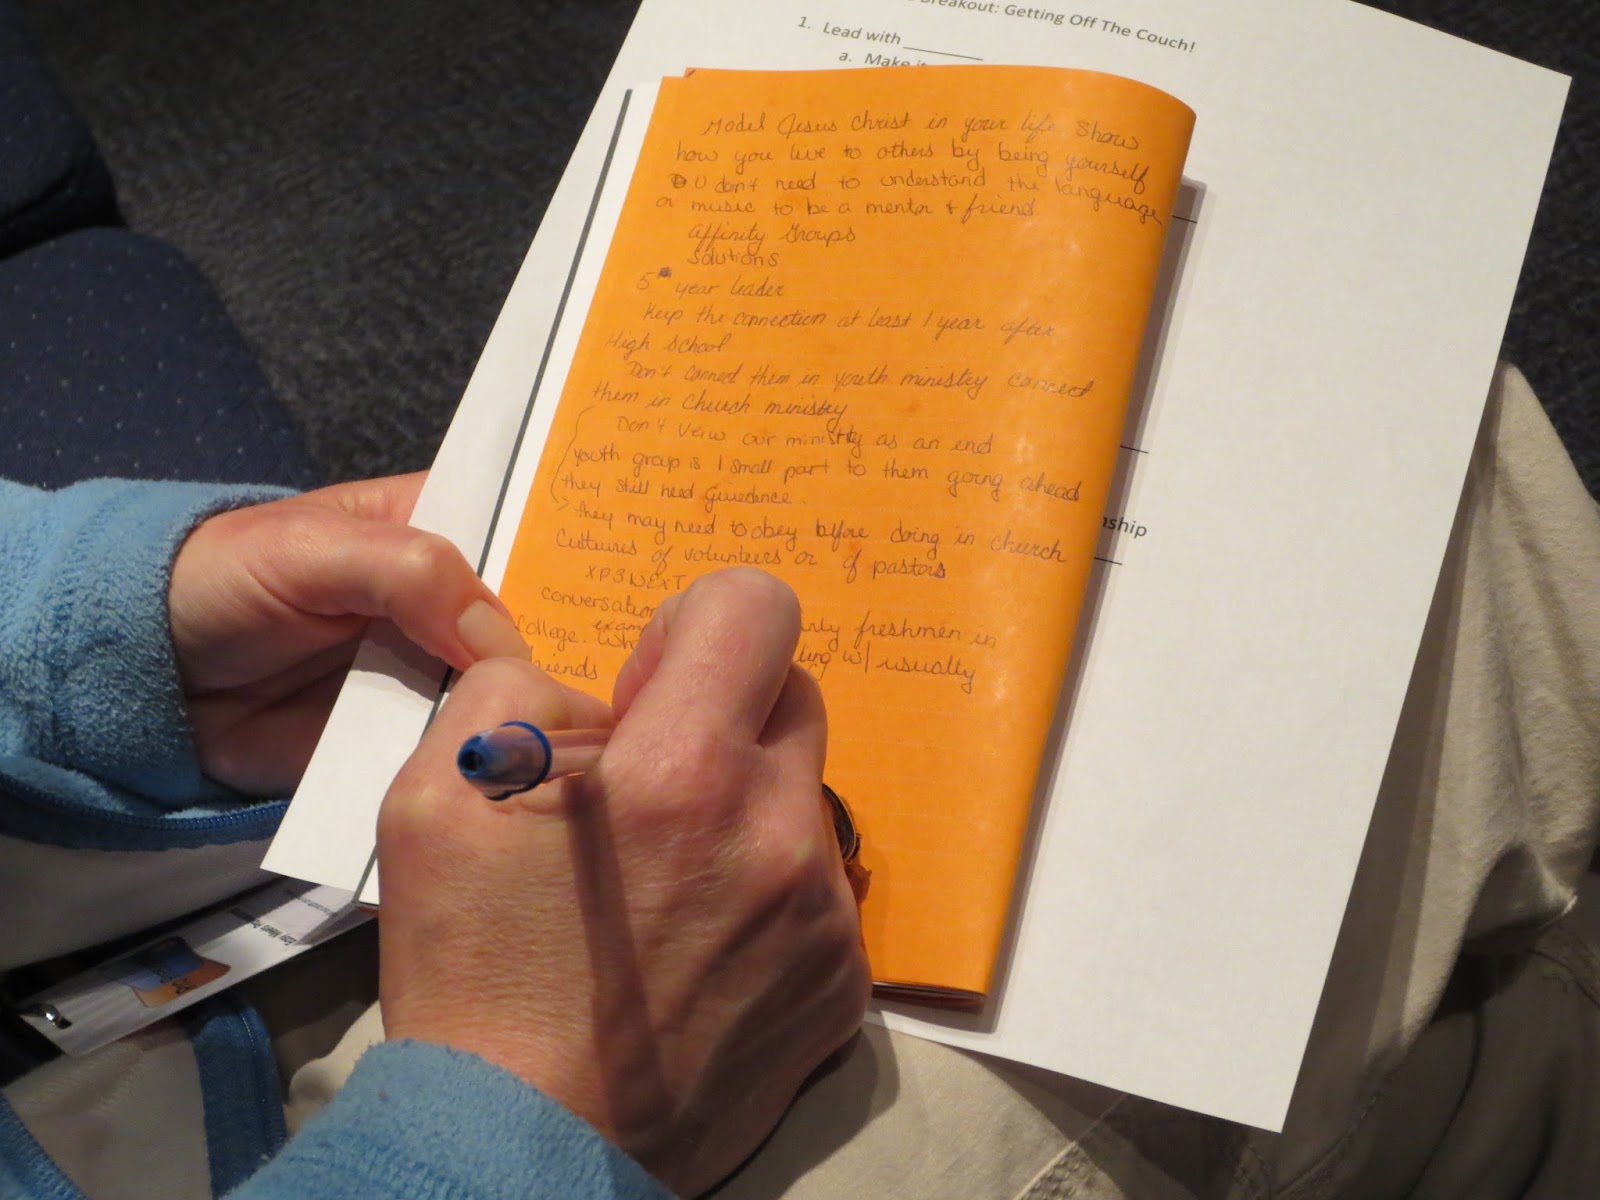 Breakout: Getting Off The Couch!
1. Lead with
a. Make it
Model Jesus Christ in your life Show
how you live to others by being yourself
U don't need to understand the language
or music to be a mentor + friend
Affinity Groups
Solutions
5th year leader
Keep the connection at least 1 year after
High School
Don't connect them in youth ministry connect
them in church ministry
Don't veiw our ministry as an end
youth group is 1 small part to them going ahead
they still need Guiedence.
> they may need to obey before doing in church
Cultures of volunteers or of pastors
XP3 NEXT
conversation
exam rly freshmen in
College. Wh ling w/ usually
friends
nship